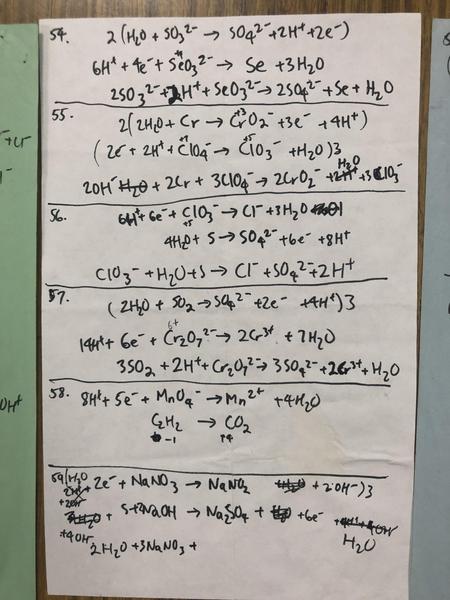 54. 2(H₂O + SO₃²⁻ → SO₄²⁻ + 2H⁺ + 2e⁻)
+4
6H⁺ + 4e⁻ + SeO₃²⁻ → Se + 3H₂O
2SO₃²⁻ + 2H⁺ + SeO₃²⁻ → 2SO₄²⁻ + Se + H₂O
55. 2(2H₂O + Cr → CrO₂⁻ + 3e⁻ + 4H⁺)
+3
(2e⁻ + 2H⁺ + ClO₄⁻ → ClO₃⁻ + H₂O)3
+5
H₂O
2OH⁻ + 2Cr + 3ClO₄⁻ → 2CrO₂⁻ + 3ClO₃⁻
56.
6H⁺ + 6e⁻ + ClO₃⁻ → Cl⁻ + 3H₂O
+5
4H₂O + S → SO₄²⁻ + 6e⁻ + 8H⁺
ClO₃⁻ + H₂O + S → Cl⁻ + SO₄²⁻ + 2H⁺
57.
(2H₂O + SO₂ → SO₄²⁻ + 2e⁻ + 4H⁺)3
6+
14H⁺ + 6e⁻ + Cr₂O₇²⁻ → 2Cr³⁺ + 7H₂O
3SO₂ + 2H⁺ + Cr₂O₇²⁻ → 3SO₄²⁻ + 2Cr³⁺ + H₂O
58. 8H⁺ + 5e⁻ + MnO₄⁻ → Mn²⁺ + 4H₂O
C₂H₂ → CO₂
-1 +4
59 (H₂O
2e⁻ + NaNO₃ → NaNO₂ + 2OH⁻)3
S + 2NaOH → Na₂SO₄ + 6e⁻
H₂O
2H₂O + 3NaNO₃ +
+ Cl⁻
OH⁺